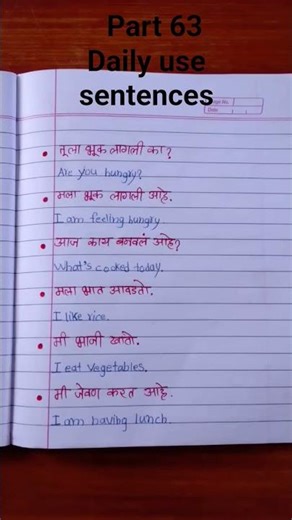 Part 63
Daily use
sentences
Date
• तुला भूक लागली का?
Are you hungry?
• मला भूक लागली आहे.
I am feeling hungry.
• आज काय बनवलं आहे?
What's cooked today.
• मला भात आवडतो.
I like rice.
• मी भाजी खातो.
I eat vegetables.
• मी जेवण करत आहे.
I am having lunch.